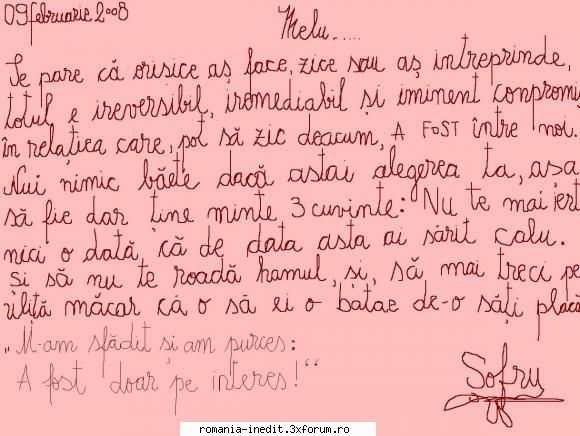 09 februarie 2008
Melu.....
Se pare că orisice aș face, zice sau aș intreprinde,
totul e ireversibil, iremediabil și iminent compromi
în relația care, pot să zic deacum, A FOST între noi.
Nui nimic băete dacă astai alegerea ta, asa
să fie dar tine minte 3 cuvinte: Nu te mai iert
nici o dată, că de data asta ai sărit calu.
Si să nu te roadă hamul, și, să mai treci pe
uliță măcar că o să ei o bătae de-o săți placă
„M-am sfădit și am purces:
A fost doar pe interes!“
Sofru
romania-inedit.3xforum.ro